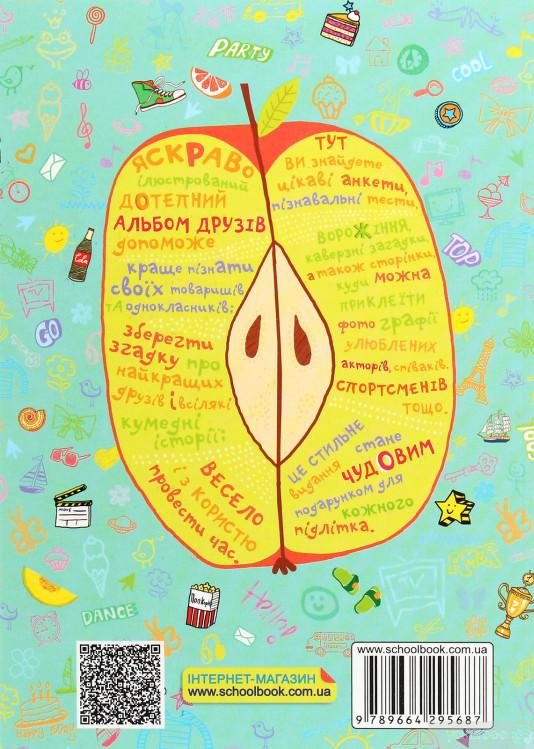 PARTY
COOL
ЯСКРАВО
ілюстрований
ДОТЕПНИЙ
АЛЬБОМ ДРУЗІВ
допоможе
краще пізнати
своїх товаришів
та однокласників:
зберегти
згадку про
найкращих
друзів і всілякі
кумедні
історії;
ВЕСЕЛО
із користю
провести час.
ТУТ
ВИ знайдете
цікаві анкети,
пізнавальні тести,
ВОРОЖІННЯ,
каверзні загадки,
а також сторінки,
куди можна
приклеїти
фотографії
улюблених
акторів, співаків,
спортсменів
тощо.
ЦЕ СТИЛЬНЕ
видання стане
ЧУДОВИМ
подарунком для
кожного
підлітка.
TOP
Cola
GO
COOL
DANCE
Hello!
Happy B.Day
ІНТЕРНЕТ-МАГАЗИН
www.schoolbook.com.ua
www.schoolbook.com.ua
9 789664 295687